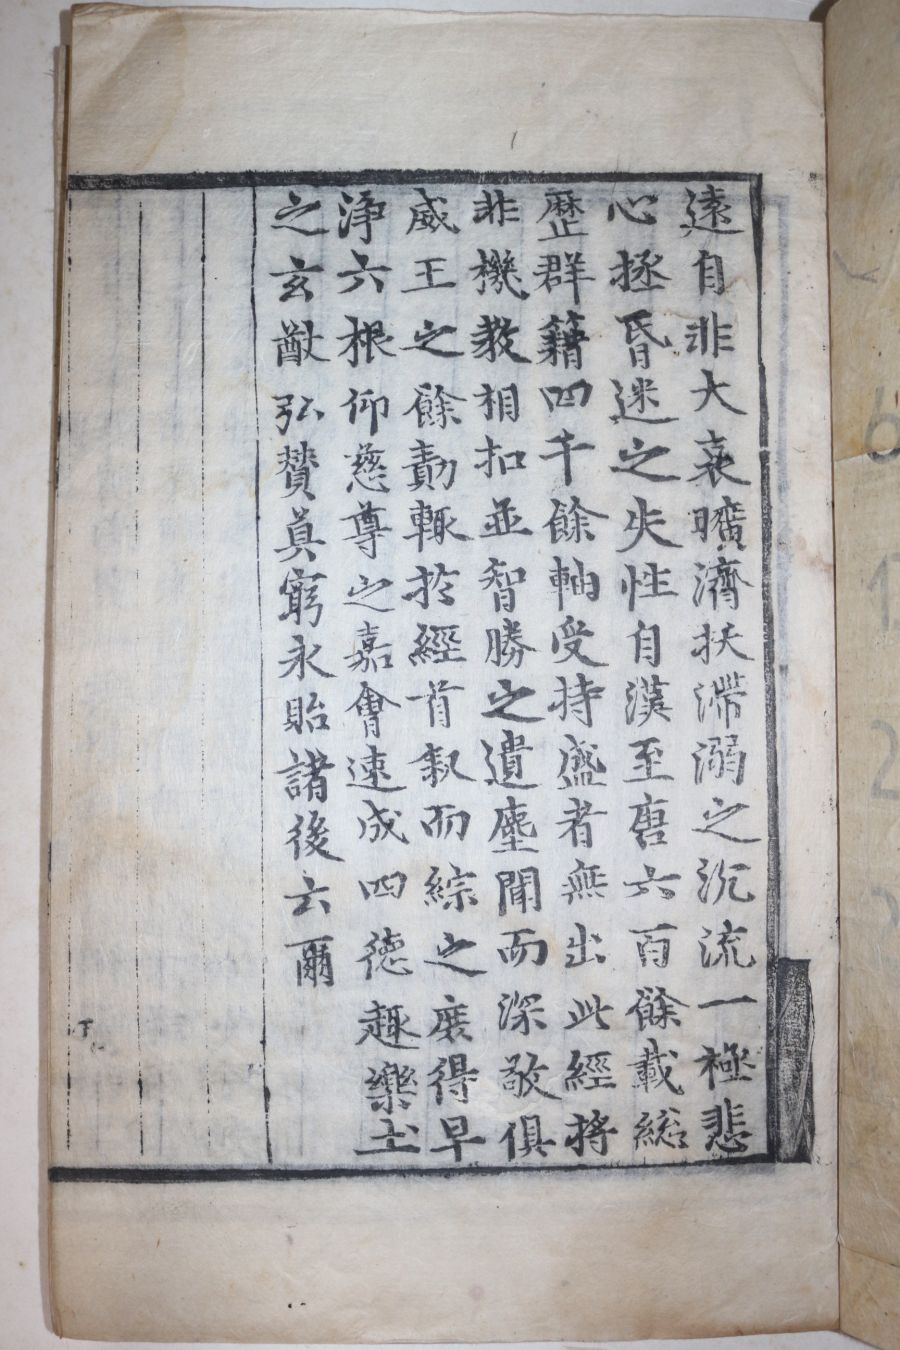 遠自非大哀曠濟扶滯溺之沉流一極悲
心拯昏迷之失性自漢至唐六百餘載緫
歷群籍四千餘軸受持盛者無出此經將
非機教相扣並智勝之遺塵聞而深敬俱
威王之餘勣輒於經首叙而綜之庶得早
淨六根仰慈尊之嘉會速成四德趣樂土
之玄猷弘賛真窮永貽諸後云爾